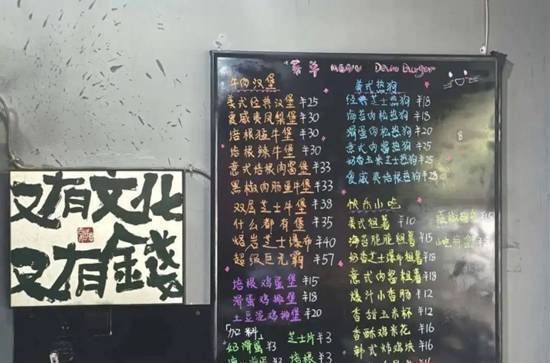 又有文化
又有錢
菜单 MENU Dawn Burger
牛肉汉堡
美式经典汉堡 ¥25
夏威夷凤梨堡 ¥30
培根猛牛堡 ¥30
培根辣牛堡 ¥30
意式培根肉酱堡 ¥33
黑椒肉肠蛋牛堡 ¥33
双层芝士牛堡 ¥38
什么都有堡 ¥35
爆岩芝士瀑布 ¥40
超级巨无霸 ¥57
培根鸡蛋堡 ¥15
滑蛋鸡排堡 ¥18
土豆泥鸡排堡 ¥20
加料
芝士片 ¥3
奶滑蛋 ¥3
培根 ¥3
美式热狗
经典芝士热狗 ¥18
海苔肉松热狗 ¥18
滑蛋肉松热狗 ¥20
意式肉酱热狗 ¥25
奶香玉米芝士热狗 ¥25
夏威夷培根热狗 ¥25
快乐小吃
美式粗薯 ¥10
海苔脆脆粗薯 ¥15
奶香芝士瀑布粗薯 ¥18
意式肉酱粗薯 ¥18
爆汁小香肠 ¥12
香甜玉米杯 ¥12
香酥鸡米花 ¥16
韩式炸鸡块 ¥16